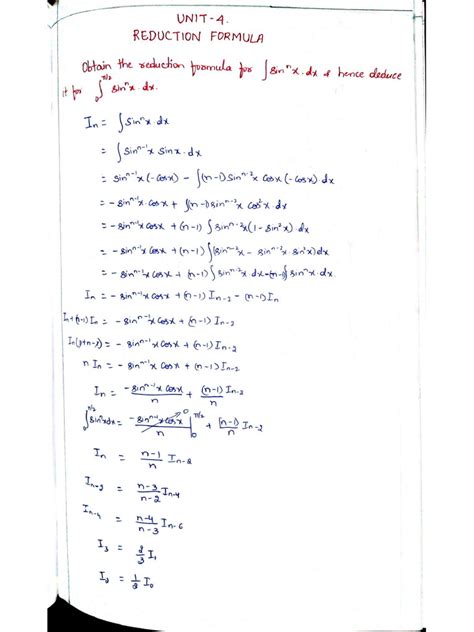 UNIT-4.
REDUCTION FORMULA
Obtain the reduction formula for ∫sinⁿx.dx & hence deduce
it for ∫₀^{π/2} sinⁿx.dx.
Iₙ = ∫sinⁿx.dx
= ∫sinⁿ⁻¹x sinx.dx
= sinⁿ⁻¹x(-cosx) - ∫(n-1)sinⁿ⁻²x cosx(-cosx).dx
= -sinⁿ⁻¹x.cosx + ∫(n-1)sinⁿ⁻²x cos²x.dx
= -sinⁿ⁻¹x cosx + (n-1)∫sinⁿ⁻²x(1-sin²x).dx
= -sinⁿ⁻¹x cosx + (n-1)∫(sinⁿ⁻²x - sinⁿ⁻²x.sin²x)dx
= -sinⁿ⁻¹x cosx + (n-1)∫sinⁿ⁻²x.dx-(n-1)∫sinⁿx.dx
Iₙ = -sinⁿ⁻¹x cosx + (n-1)Iₙ₋₂ - (n-1)Iₙ
Iₙ+(n-1)Iₙ = -sinⁿ⁻¹x cosx + (n-1)Iₙ₋₂
Iₙ(1+n-1) = -sinⁿ⁻¹x cosx + (n-1)Iₙ₋₂
n Iₙ = -sinⁿ⁻¹x cosx + (n-1)Iₙ₋₂
Iₙ = -sinⁿ⁻¹x cosx/n + (n-1)/n Iₙ₋₂
∫₀^{π/2} sinⁿxdx = -sinⁿ⁻¹x cosx/n |₀^{π/2} 0 + (n-1)/n Iₙ₋₂
Iₙ = n-1/n Iₙ₋₂
Iₙ₋₂ = n-3/n-2 Iₙ₋₄
Iₙ₋₄ = n-4/n-3 Iₙ₋₆
I₃ = 2/3 I₁
I₂ = 1/2 I₀